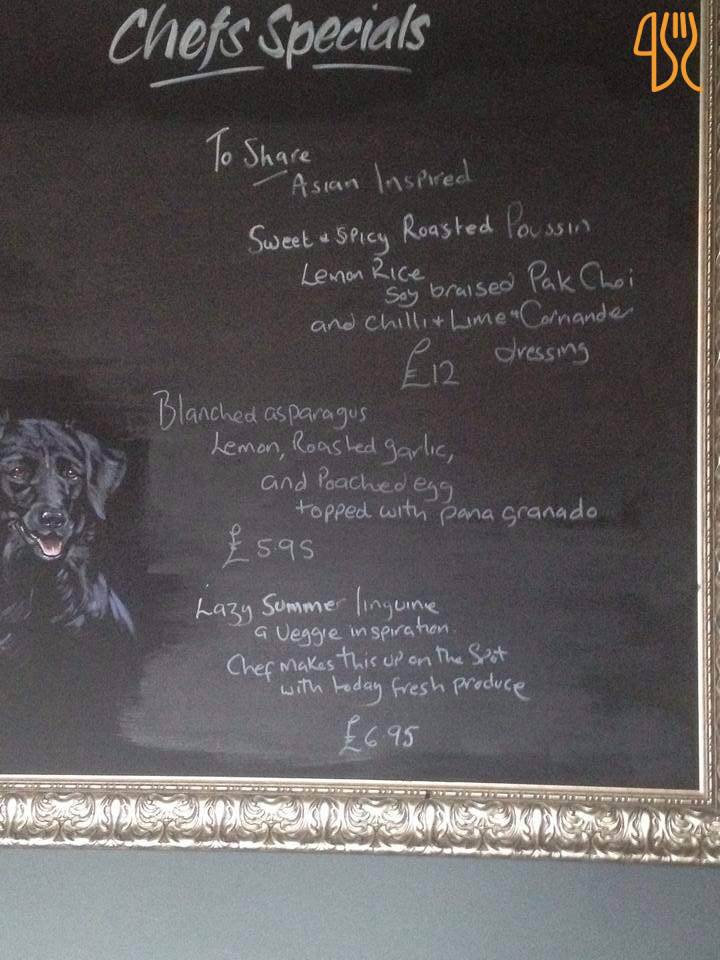 Chefs Specials
To Share
Asian Inspired
Sweet & Spicy Roasted Poussin
Lemon Rice
Soy braised Pak Choi
and chilli + Lime + Coriander
dressing
£12
Blanched asparagus
Lemon, Roasted garlic,
and Poached egg
topped with pana granado
£5.95
Lazy Summer linguine
a Veggie inspiration.
Chef makes this up on the Spot
with today fresh produce
£6.95